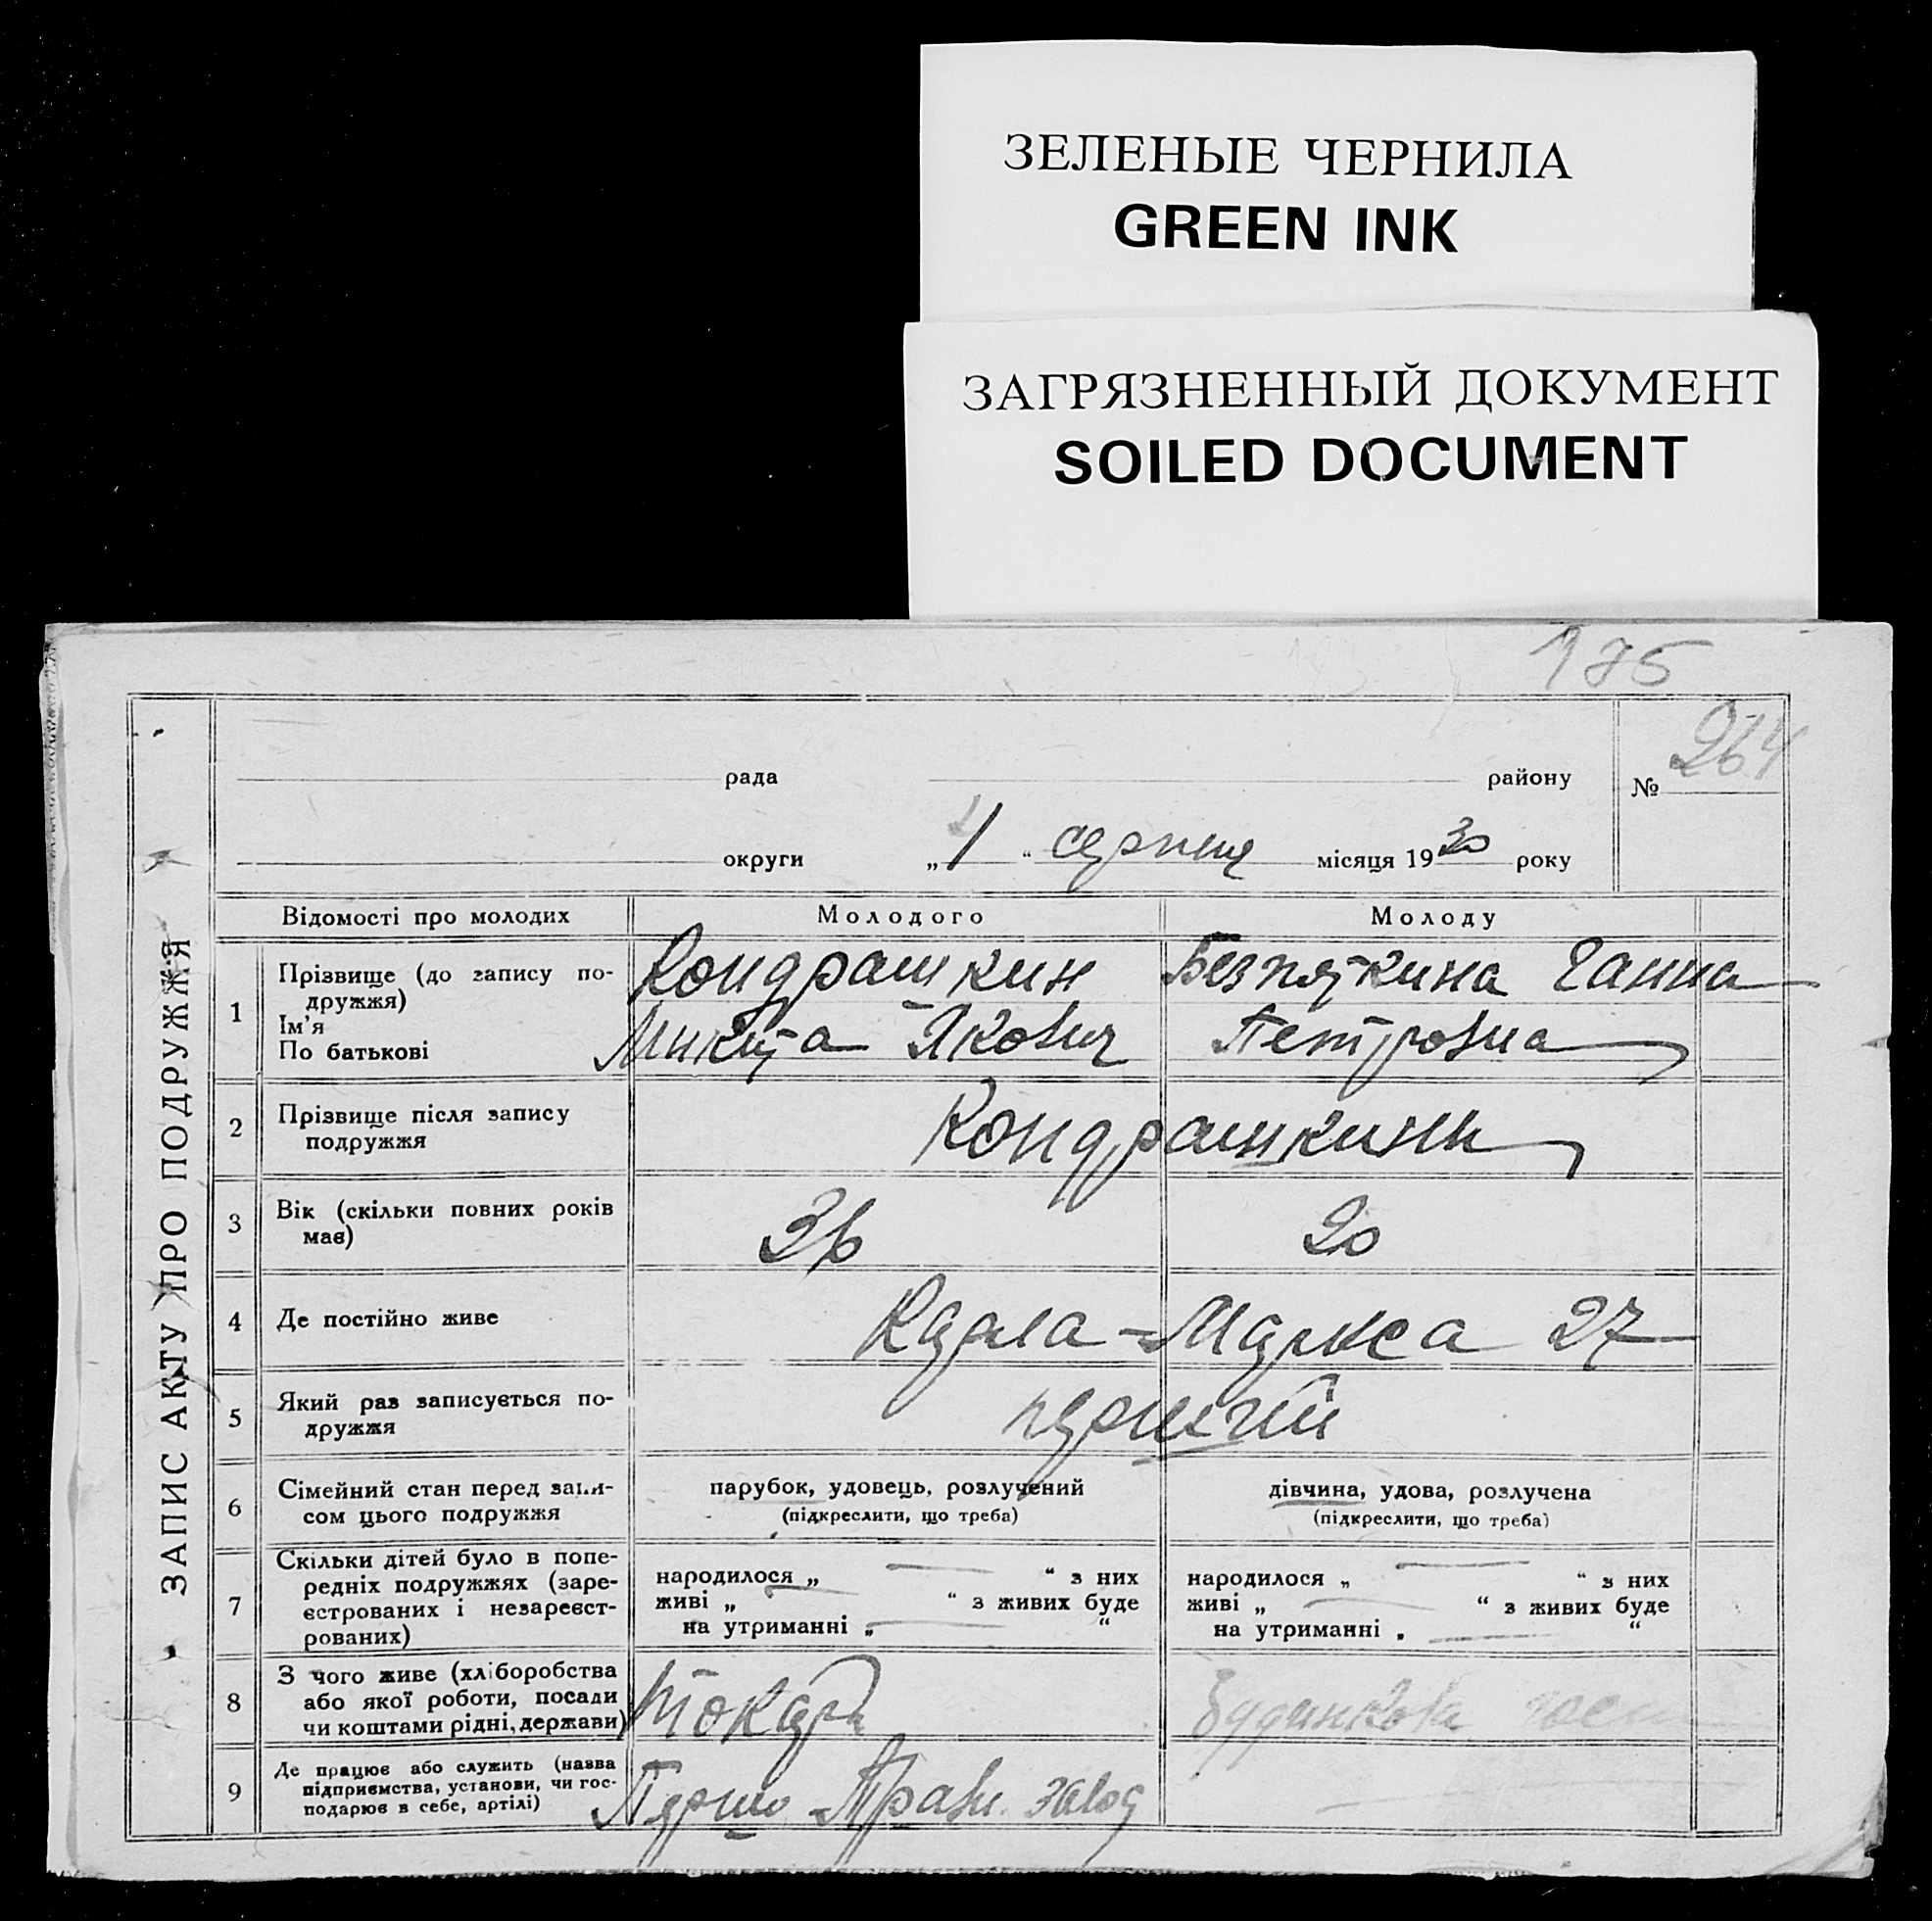 ЗЕЛЕНЫЕ ЧЕРНИЛА
GREEN INK
ЗАГРЯЗНЕННЫЙ ДОКУМЕНТ
SOILED DOCUMENT
175
рада району № 264
округи „1“ серпня місяця 1930 року
ЗАПИС АКТУ ПРО ПОДРУЖЖЯ
Відомості про молодих Молодого Молоду
1 Прізвище (до запису по-
дружжя)
Ім'я
По батькові
Кондрашкин
Микита Якович
Безпяткина Ганна
Петровна
2 Прізвище після запису
подружжя
Кондрашкины
3 Вік (скільки повних років
має)
36 20
4 Де постійно живе Карла-Маркса 27
5 Який раз записується по-
дружжя
перший
6 Сімейний стан перед запи-
сом цього подружжя
парубок, удовець, розлучений
(підкреслити, що треба)
дівчина, удова, розлучена
(підкреслити, що треба)
7 Скільки дітей було в попе-
редніх подружжях (заре-
єстрованих і незареєст-
рованих)
народилося „ — “ з них
живі „ — “ з живих буде
на утриманні „ — “
народилося „ — “ з них
живі „ — “ з живих буде
на утриманні „ — “
8 З чого живе (хліборобства
або якої роботи, посади
чи коштами рідні, держави)
токарь
Будинкова госп
9 Де працює або служить (назва
підприємства, установи, чи гос-
подарює в себе, артілі)
завод
—